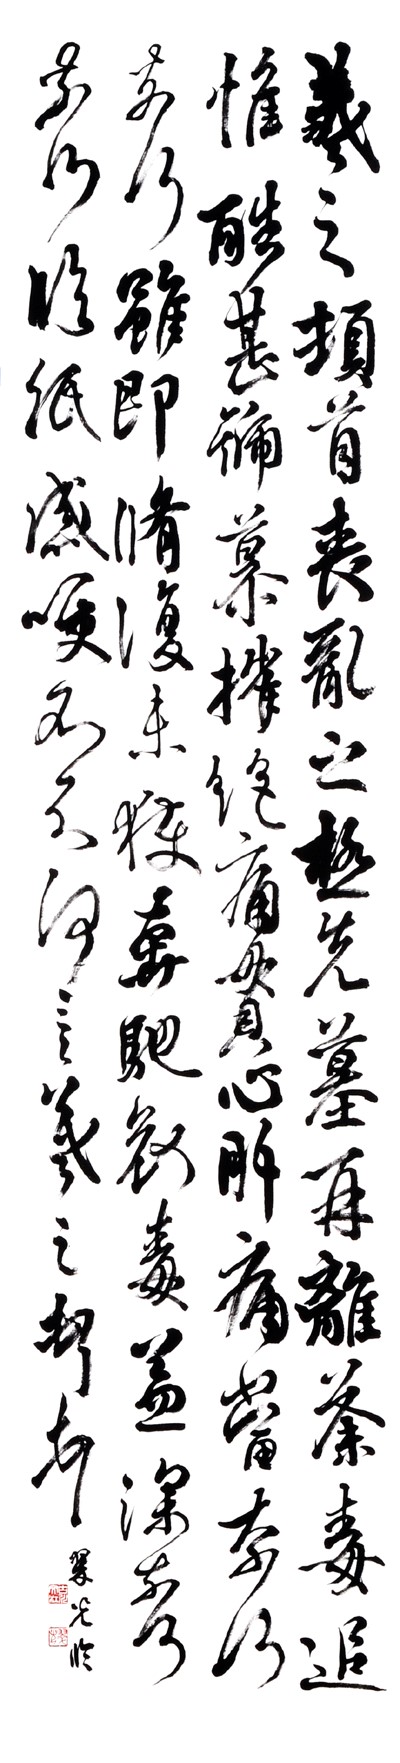 羲之頓首喪亂之極先墓再離荼毒追
惟酷甚號慕摧絶痛貫心肝痛當奈何
奈何雖即脩復未獲奔馳哀毒益深奈何
奈何臨紙感哽不知何言羲之頓首
翠光臨